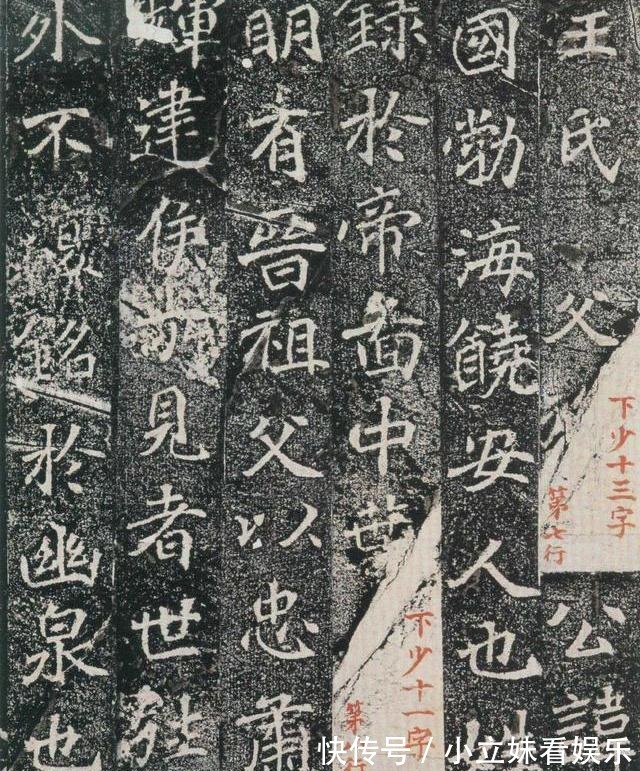 王氏父
下少十三字
第七行
公諱
國勃海饒安人也
錄於帝啚中葉
下少十一字
第
行
明有晉祖父以忠肅
輝建侯見者世
外不銘於幽泉也
快传号/小立妹看娱乐